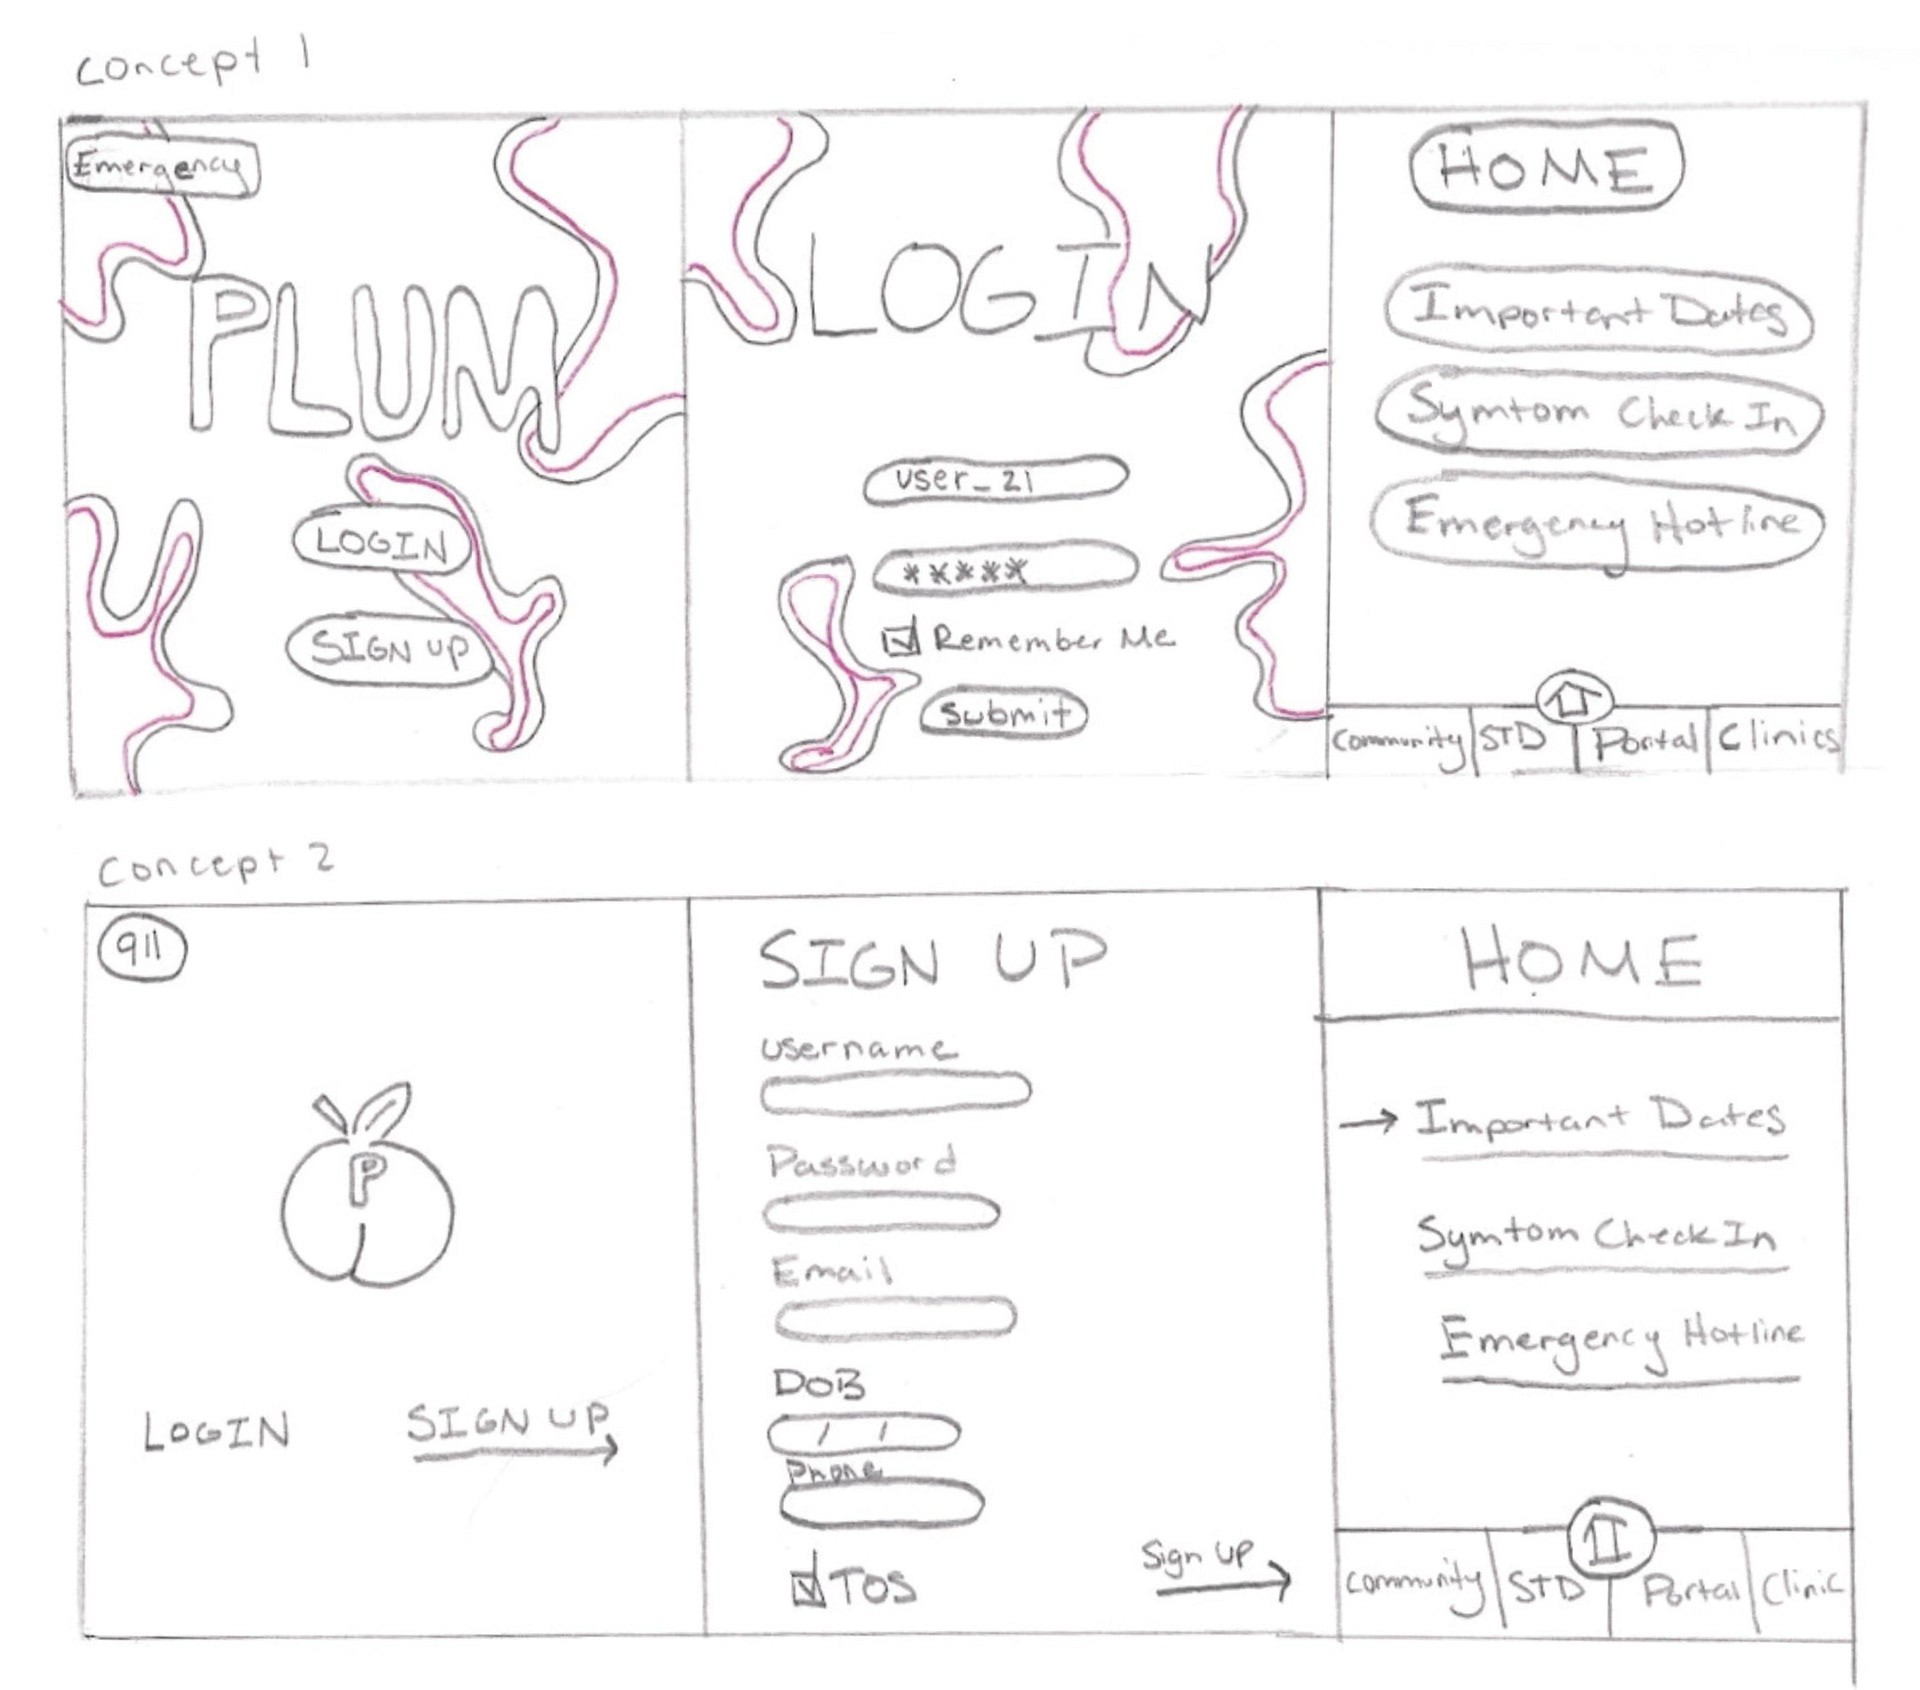 Concept 1
Emergency
PLUM
LOGIN
SIGN UP
LOGIN
user_21
*****
Remember Me
Submit
HOME
Important Dates
Symtom Check In
Emergency Hotline
Community STD Portal Clinics
Concept 2
911
P
LOGIN SIGN UP
SIGN UP
Username
Password
Email
DOB
/ /
Phone
TOS
Sign UP
HOME
Important Dates
Symtom Check In
Emergency Hotline
Community STD Portal Clinic